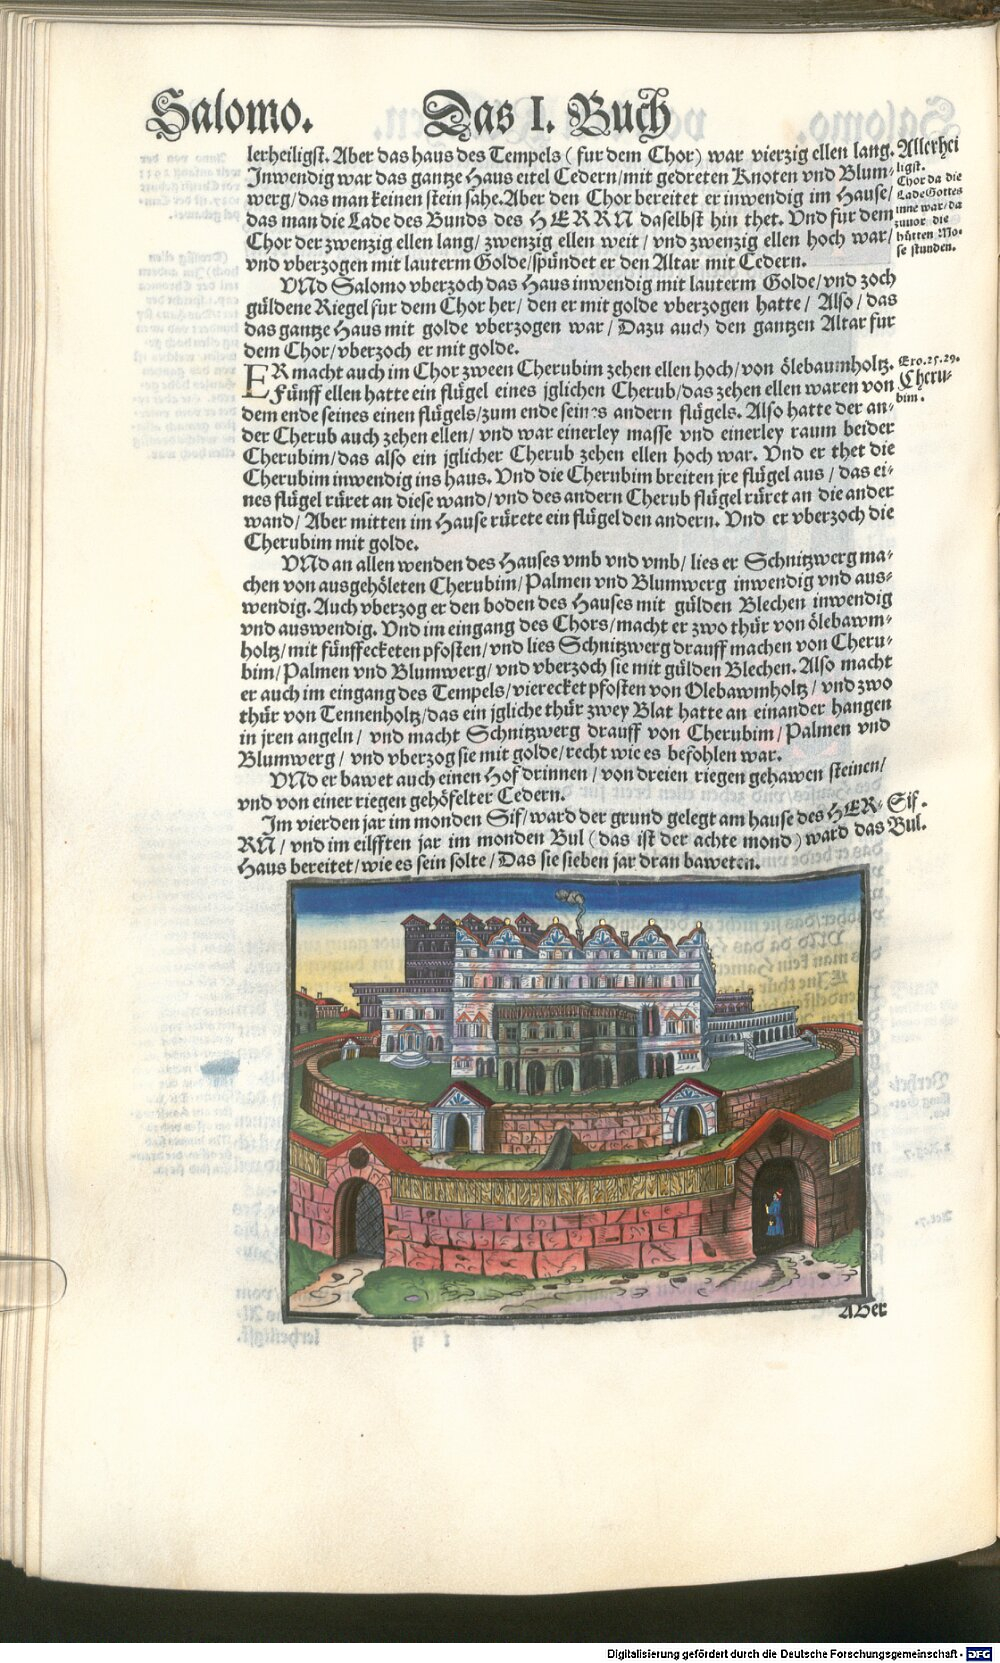 Salomo. Das I. Buch
lerheiligst. Aber das haus des Tempels (fur dem Chor) war vierzig ellen lang.
Inwendig war das gantze Haus eitel Cedern/mit gedreten Knoten vnd Blum-
werg/das man keinen stein sahe. Aber den Chor bereitet er inwendig im Hause/
das man die Lade des Bunds des HERRN daselbst hin thet. Vnd fur dem
Chor der zwenzig ellen lang/ zwenzig ellen weit/ vnd zwenzig ellen hoch war/
vnd vberzogen mit lauterm Golde/spündet er den Altar mit Cedern.
Allerhei
ligst.
Chor da die
Lade Gottes
inne war/da
zuuor die
hütten Mo-
se stunden.
VNd Salomo vberzoch das Haus inwendig mit lauterm Golde/vnd zoch
güldene Riegel fur dem Chor her/ den er mit golde vberzogen hatte/ Also/ das
das gantze Haus mit golde vberzogen war/ Dazu auch den gantzen Altar fur
dem Chor/vberzoch er mit golde.
ER macht auch im Chor zween Cherubim zehen ellen hoch/von ölebaumholtz.
Fünff ellen hatte ein flügel eines jglichen Cherub/das zehen ellen waren von
dem ende seines einen flügels/zum ende seines andern flügels. Also hatte der an-
der Cherub auch zehen ellen/ vnd war einerley masse vnd einerley raum beider
Cherubim/das also ein jglicher Cherub zehen ellen hoch war. Vnd er thet die
Cherubim inwendig ins haus. Vnd die Cherubim breiten jre flügel aus/ das ei-
nes flügel rüret an diese wand/vnd des andern Cherub flügel rüret an die ander
wand/ Aber mitten im Hause rürete ein flügel den andern. Vnd er vberzoch die
Cherubim mit golde.
Exo.25.29.
Cheru-
bim.
VNd an allen wenden des Hauses vmb vnd vmb/ lies er Schnitzwerg ma-
chen von ausgehöleten Cherubim/Palmen vnd Blumwerg inwendig vnd aus-
wendig. Auch vberzog er den boden des Hauses mit gülden Blechen inwendig
vnd auswendig. Vnd im eingang des Chors/macht er zwo thür von ölebawm-
holtz/mit fünffecketen pfosten/vnd lies Schnitzwerg drauff machen von Cheru-
bim/Palmen vnd Blumwerg/ vnd vberzoch sie mit gülden Blechen. Also macht
er auch im eingang des Tempels/vierecket pfosten von Olebawmholtz/ vnd zwo
thür von Tennenholtz/das ein jgliche thür zwey Blat hatte an einander hangen
in jren angeln/ vnd macht Schnitzwerg drauff von Cherubim/Palmen vnd
Blumwerg/ vnd vberzog sie mit golde/recht wie es befohlen war.
VNd er bawet auch einen Hof drinnen/von dreien riegen gehawen steinen/
vnd von einer riegen gehöfelter Cedern.
Im vierden jar im monden Sif/ward der grund gelegt am hause des HER-
RN/ vnd im eilfften jar im monden Bul (das ist der achte mond) ward das
Haus bereitet/wie es sein solte/ Das sie sieben jar dran baweten.
Sif.
Bul.
ABer
Digitalisierung gefördert durch die Deutsche Forschungsgemeinschaft - DFG